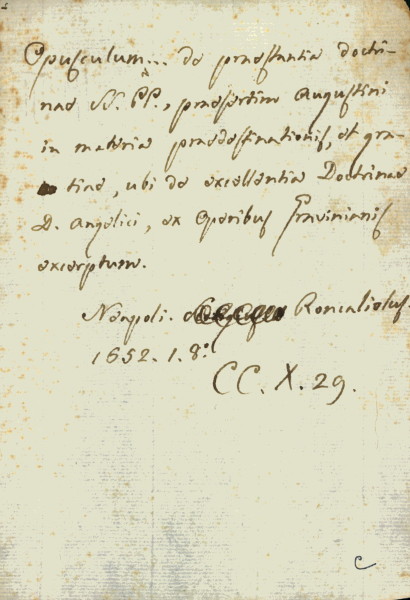 Opusculum... de praestantia doctri-
nae SS. PP., praesertim Augustini
in materia praedestinationis, et gra-
tiae, ubi de excellentia Doctrinae
D. Angelici, ex operibus Gravinianis
excerptum.
Neapoli. Roncaliolus.
1652. 1. 8.º
CC. X. 29.
C